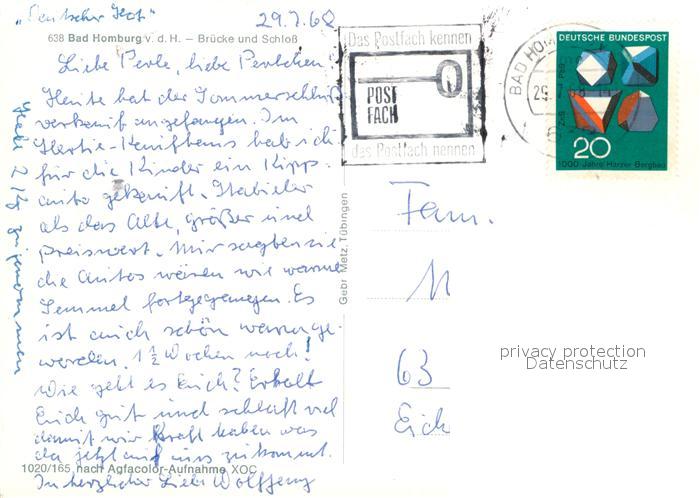 "Deutscher
29.7.68
638 Bad Homburg v. d. H. – Brücke und Schloß
Das Postfach kennen
POST
FACH
das Postfach nennen
BAD HOM
29.7.68
DEUTSCHE BUNDESPOST
20
1000 Jahre Harzer Bergbau
Liebe Perle, liebe Perlchen!
Heute hat der Sommerschluß
verkauf angefangen. Im
Hertie-Kaufhaus hab ich
für die Kinder ein Kipp-
auto gekauft. Stabieler
als das Alte, größer und
preiswert. Mir sagten sie
die Autos wären wie warme
Semmel fortgegangen. Es
ist auch schön warm ge-
worden. 1 1/2 Wochen noch!
Wie geht es Euch? Erholt
Euch gut und schlaft viel
damit wir Kraft haben was
da jetzt auf uns zukommt.
In herzlicher Liebe Wolfgang
zugenommen
Gebr. Metz, Tübingen
1020/165 nach Agfacolor-Aufnahme XOC
Fam.
M
63
Eich
privacy protection
Datenschutz